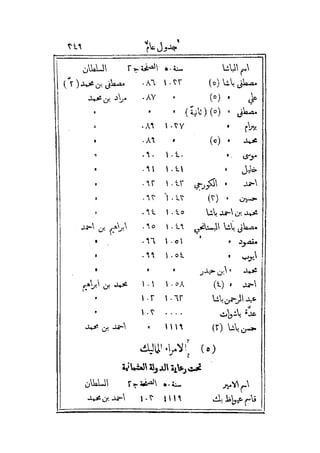 ٢٤٩ «جدول عام»
اسم الباشا سنة ٠ه الصفحة ج ٢ السلطان
مصطفى باشا (٥) ١٠٣٣ ٠٨٦ مصطفى بن محمد (٢)
علي » (٥) » ٠٨٧ مراد بن محمد
مصطفى » (٥) (ثانية) » » »
بيرام » ١٠٣٧ ٠٨٩ »
محمد » (٥) » ٠٨٩ »
موسى » ١٠٤٠ ٠٩٠ »
خليل » ١٠٤١ ٠٩١ »
احمد » الكورجي ١٠٤٣ ٠٩٣ »
حسين » (٣) ٠٩٣ »
محمد بن احمد باشا ١٠٤٥ ٠٩٤ »
مصطفى باشا البستانجي ١٠٤٩ ٠٩٥ ابراهيم بن احمد
مقصود » ١٠٥١ ٠٩٦ »
ايوب » ١٠٥٤ ٠٩٩ »
محمد » ابن حيدر » » »
احمد » (٤) ١٠٥٨ ١٠١ محمد بن ابراهيم
عبد الرحمن باشا ١٠٦٢ ١٠٢ »
عدة باشوات ٠٠٠٠ ١٠٢ »
حسن باشا (٢) ١١١٩ » احمد بن محمد
(٥) الامراء المماليك
تحت رعاية الدولة العثمانية
اسم الامير سنة ٠ه الصفحة ج ٢ السلطان
قاسم عيواظ بك ١١١٩ ١٠٢ احمد بن محمد